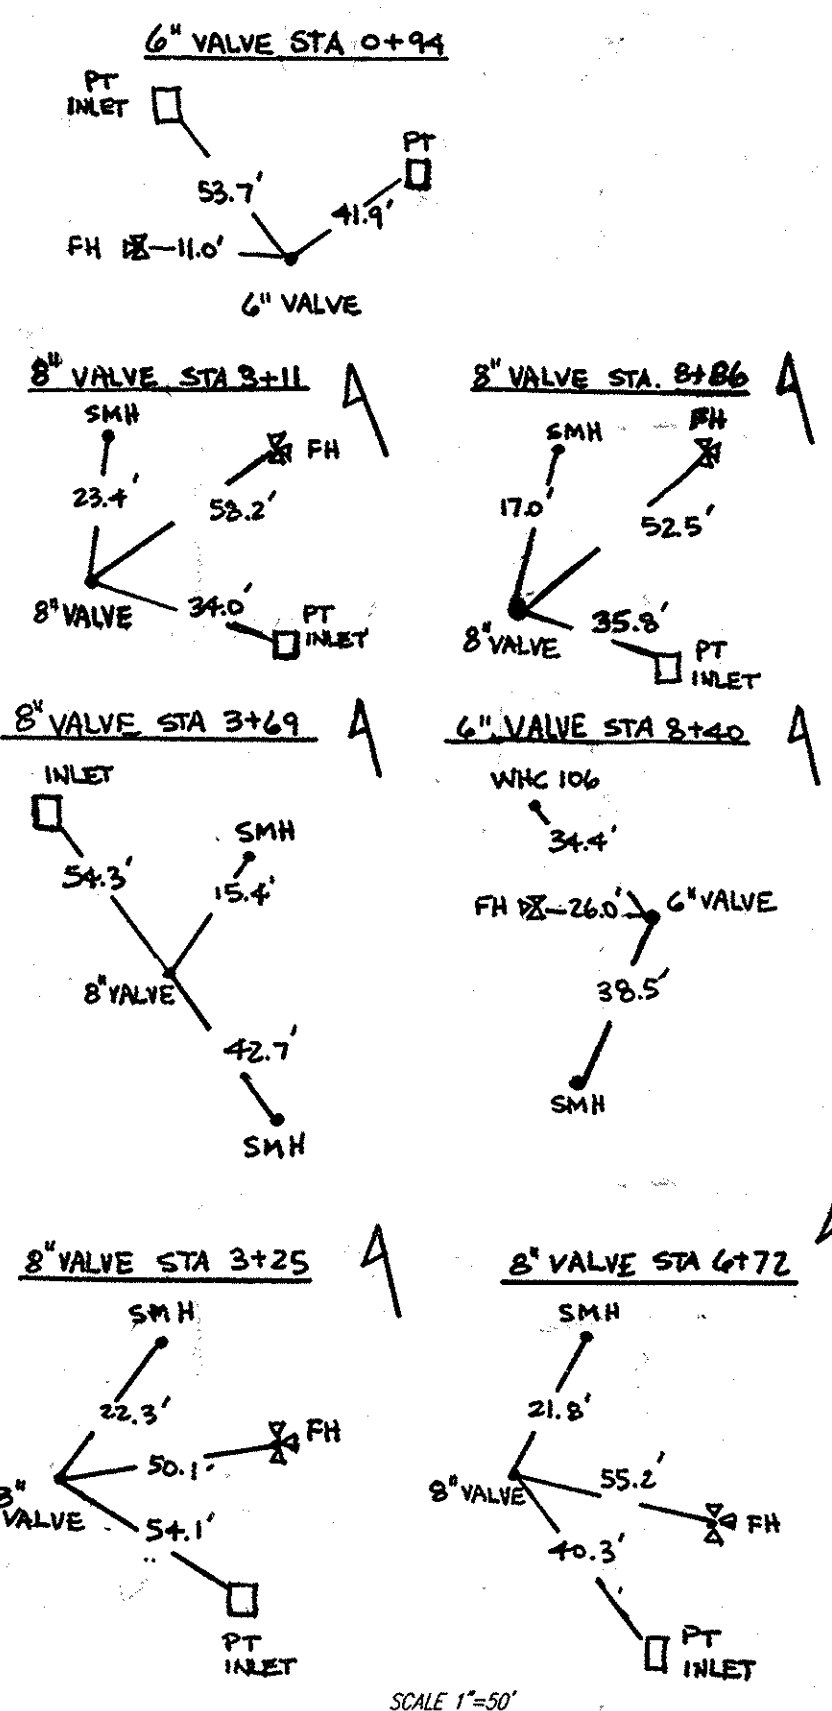 6" VALVE STA 0+94
PT
INLET
PT
53.7'
41.9'
FH
11.0'
6" VALVE
8" VALVE STA 3+11
SMH
FH
23.4'
58.2'
8" VALVE
34.0'
PT
INLET
8" VALVE STA. 8+86
FH
SMH
17.0'
52.5'
35.8'
8" VALVE
PT
INLET
8" VALVE STA 3+69
INLET
SMH
54.3'
15.4'
8" VALVE
42.7'
SMH
6" VALVE STA 8+40
WHC 106
34.4'
FH
26.0'
6" VALVE
38.5'
SMH
8" VALVE STA 3+25
SMH
22.3'
FH
50.1'
8"
VALVE
54.1'
PT
INLET
8" VALVE STA 6+72
SMH
21.8'
55.2'
8" VALVE
FH
40.3'
PT
INLET
SCALE 1"=50'